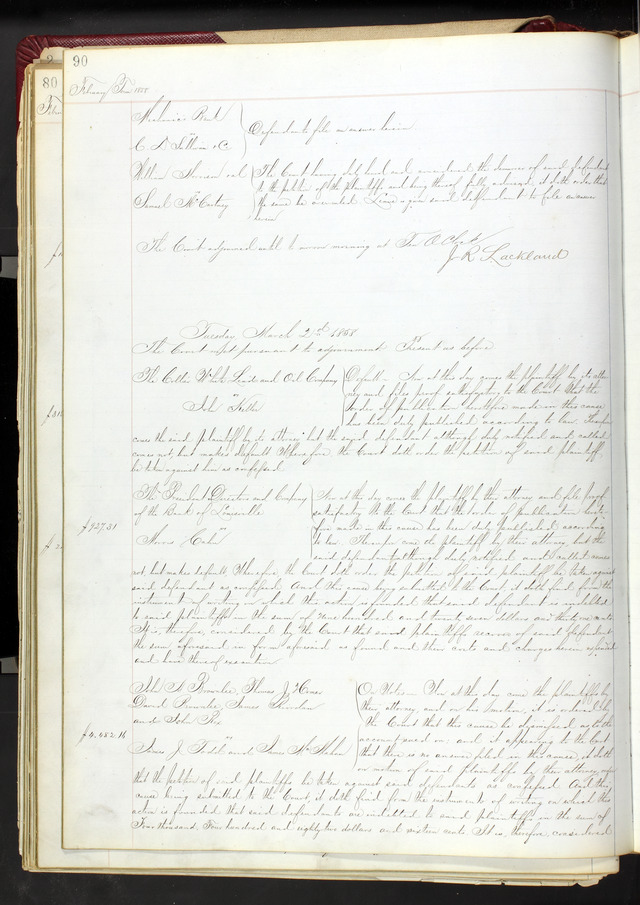 90
80
February Term 1858
vs
Defendants file an answer herein
William al The Court having duly heard and considered the demurrer of said defendant
to the petition of the plaintiffs and being thereof fully advised, it doth order that
Samuel McCartney the same be overruled Leave is given said defendant to file answer
herein
The Court adjourned until to morrow morning at Ten O'Clock
J R Lackland
Tuesday March 2nd 1858
The Court met pursuant to adjournment Present as before
The Collier White Lead and Oil Company Default - Now at this day comes the plaintiff by its attor
vs ney and files proof satisfactory to the Court that the
John order of publication heretofore made in this cause
has been duly published according to law. Thereupon
comes the said plaintiff by its attorney but the said defendant although duly notified and called
comes not but makes default Wherefore the Court doth order the petition of said plaintiff
be taken against him as confessed
The President Directors and Company Now at this day comes the plaintiff by their attorney and file proof
$927.31
of the Bank of Louisville satisfactory to the Court that the order of publication hereto-
vs fore made in this cause has been duly published according
to law. Thereupon come the plaintiff by their attorney, but the
said defendant although duly notified and called comes
not, but makes default Wherefore the Court doth order the petition of said plaintiff be taken against
said defendant as confessed And this cause being submitted to the Court it doth find from the
instrument of writing on which this action is founded that said defendant is indebted
to said plaintiffs in the sum of nine hundred and twenty seven dollars and thirty one cents
It is, therefore, considered by the Court that said plaintiffs recover of said defendant
the sum aforesaid in form aforesaid as found and their costs and charges herein expended
and have thereof execution
John Brownlee, Thomas J Homer On Note - Now at this day come the plaintiffs by
David Brownlee, James their attorney, and on his motion, it is ordered by
and John the Court that this cause be dismissed, as to the
$4,482.16
vs account sued on, and it appearing to the Court
James J. and James that there is no answer filed in this cause, it doth
on motion of said plaintiffs by their attorney, order
that the petition of said plaintiffs be taken against said defendants as confessed And this
cause being submitted to the Court, it doth find from the instrument of writing on which this
action is founded that said defendants are indebted to said plaintiffs in the sum of
Four thousand, Four hundred and eighty two dollars and sixteen cents It is, therefore, considered